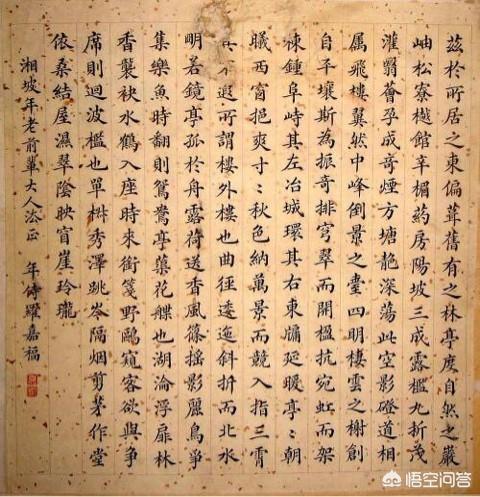 茲於所居之東偏葺舊有之林亭度自然之巖
岫松寮樾館辛楣葯房陽坡三成露檻九折茂
灌翳薈孕成奇煙方塘艶深蕩此空影磴道相
属飛樓翼然中峰倒景之臺四明棲雲之榭創
自平壤斯為振奇排穹翠而開楹抗宛虹而架
棟鍾阜峙其左冶城環其右東牖延暖亭〻朝
曦西窗挹爽寸〻秋色納萬景而競入指三霄
不遐所謂樓外樓也曲徑逶迤斜折而北水
明若鏡亭孤於舟露荷送香風篠摇影麗鳥爭
集樂魚時翻則鴛鴦亭藥花艓也湖淪浮扉林
香襲袂水鶴入座時來銜箋野鷗窺客欲與爭
席則迴波檻也單椒秀澤跳岑隔烟剪茅作堂
依桑結屋濕翠陰映窗崖玲瓏
湘坡年老前輩大人法正 年侍羅嘉福
悟空问答